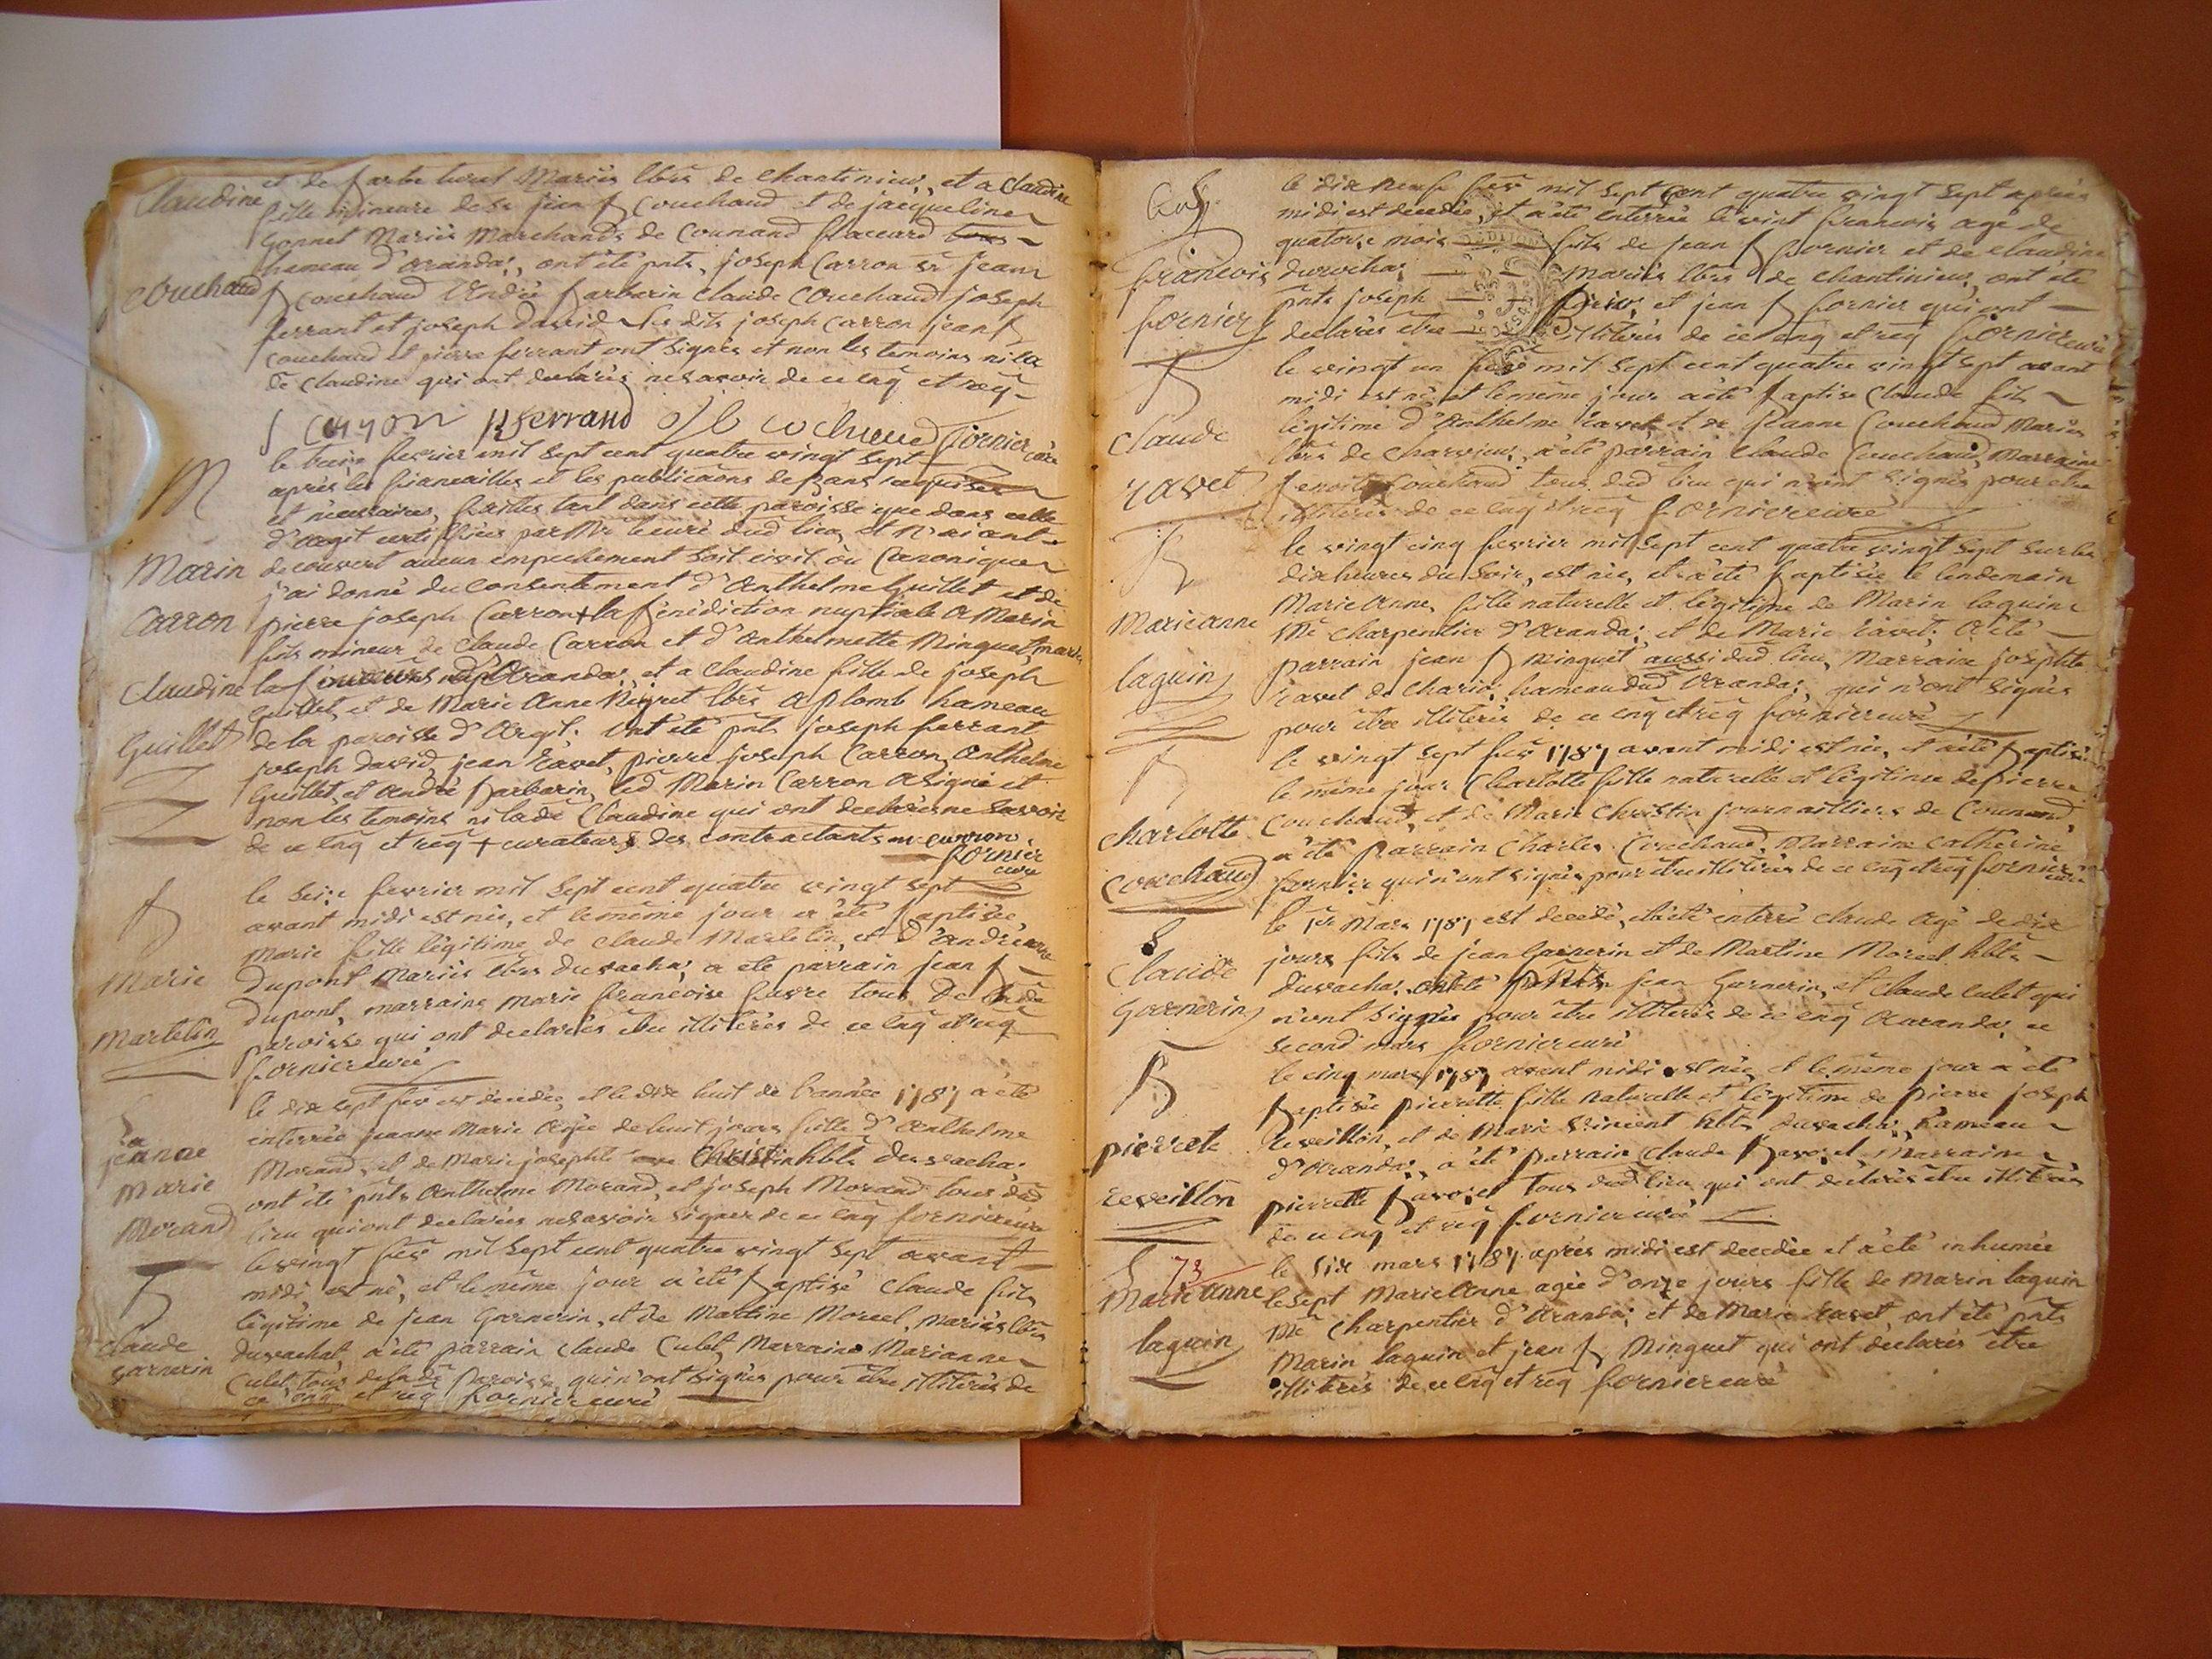 Claudine
Couchaud
et de barbe Curct Mariés lbrs de chantinieu, et a claudine
fille mineure de sr jean b couchaud et de jacqueline
Gonnet Mariés Marchands de Counand placeurd
hameau d'arandas, ont été pnts, joseph Carron sr jean
b couchaud André barbarin claude couchaud joseph
ferrant et joseph david les dits joseph carron jean b
couchaud et pierre ferrant ont signés et non les temoins ni la
de claudine qui ont declarés ne savoir de ce enq et req
J carron p ferrand J b cochaud fornier curé
M
Marin
Carron
Claudine
Guillet
le treize fevrier mil sept cent quatre vingt sept
après les fiancailles et les publications de bans requises
et necessaires, faittes tant dans cette paroisse que dans celle
d'argit certifiées par Mr le curé dud lieu, et n'aiant
decouvert aucun empechement soit civil ou Canonique
j'ai donné du consentement d'Anthelme Guillet et de
pierre joseph Carron + la benédiction nuptiale a Marin
fils mineur de claude Carron et d'Anthelmette Minguet mariés
d'Arandas, et a claudine fille de joseph
Guillet, et de Marie Anne Niquet lbrs a plomb hameau
de la paroisse d'Argit. Ont été pnts joseph ferrant
joseph david, jean Ravet, pierre joseph Carron, Anthelme
Guillet, et André barbarin, led Marin Carron a signé et
non les temoins ni lade Claudine qui ont declarés ne savoir
de ce enq et req + curateurs des contractants m carron
fornier
curé
B
Marie
Martelin
le seize fevrier mil sept cent quatre vingt sept
avant midi est née, et le même jour a été baptisée
Marie fille légitime de claude Martelin, et d'andréanne
Dupont Mariés lbrs du vachat, a eté parrain jean b
dupont, marraine marie francoise favre tous de lade
paroisse qui ont declarés etre illiterés de ce enq et req
fornier curé
S
jeanne
Marie
Morand
le dix sept fev est décedée, et le dix huit de l'année 1787 a été
enterrée jeanne Marie agée de huit jours fille d'Anthelme
Morand, et de Marie josephte Christin hbts du vachat
ont été pnts Anthelme Morand, et joseph Morand tous dud
lieu qui ont declarés ne savoir signer de ce enq fornier curé
B
Claude
Garnerin
le vingt fev mil sept cent quatre vingt sept avant
midi est né, et le même jour a été baptisé claude fils
légitime de jean Garnerin, et de Martine Morcel, mariés lbrs
du vachat a été parrain claude Culet, Marraine Marianne
Culet tous de lade paroisse, qui n'ont signés pour être illiterés de
ce enq et req fornier curé
S
francois
fornier
le dix neuf fev mil sept cent quatre vingt sept après
midi est decedé, et a été enterré le vint francois agé de
quatorze mois fils de jean b fornier et de claudine
durochat Mariés lbrs de chantinieu, ont été
pnts joseph et jean b fornier qui ont
declarés etre illiterés de ce enq et req fornier curé
B
Claude
ravet
le vingt un fev mil sept cent quatre vingt sept avant
midi est né, et le même jour a été baptisé Claude fils
légitime d'Anthelme Ravet et de jeanne Couchaud Mariés
lbrs de charvieu, a été parrain claude Couchaud, Marraine
benoite Couchaud tous dud lieu qui n'ont signés pour etre
illiterés de ce enq et req fornier curé
B
Marieanne
laguin
le vingt cinq fevrier mil sept cent quatre vingt sept sur les
dix heures du soir, est née, et a été baptisée le lendemain
Marie Anne, fille naturelle et légitime de Marin laguin
Me charpentier d'Arandas, et de Marie Ravet. a été
parrain jean b Minguet aussi dud lieu, Marraine josephte
Ravet de chario, hameau dud Arandas, qui n'ont signés
pour être illiterés de ce enq et req fornier curé
B
charlotte
couchaud
le vingt sept fev 1787 avant midi est née, et a été baptisée
le même jour Charlotte fille naturelle et légitime de pierre
Couchaud, et de Marie Christin journailliers de Counand,
a été parrain Charles Couchaud, Marraine catherine
fornier qui n'ont signés pour être illiterés de ce enq et req fornier curé
S
Claude
Garnerin
le 1er Mars 1787 est decedé, et a été enterré claude agé de dix
jours fils de jean Garnerin et de Martine Morcel hbts
du vachat. ont été pnts jean Garnerin, et claude culet qui
n'ont signés pour être illiterés de ce enq a arandas ce
second mars fornier curé
B
pierrete
reveillon
le cinq mars 1787 avant midi est née, et le même jour a été
baptisée pierrette fille naturelle et légitime de pierre joseph
Reveillon, et de Marie Vincent hbts du vachat, hameau
d'Arandas, a été parrain claude Savoiet, Marraine
pierrette Savoiet tous dud lieu qui ont declarés etre illiterés
de ce enq et req fornier curé
S 73
Marie anne
laguin
le six mars 1787 après midi est decedée et a été inhumée
le sept Marie Anne agée d'onze jours fille de Marin laguin
Me Charpentier d'Arandas et de Marie Ravet, ont été pnts
Marin laguin et jean b Minguet qui ont declarés être
illiterés de ce enq et req fornier curé